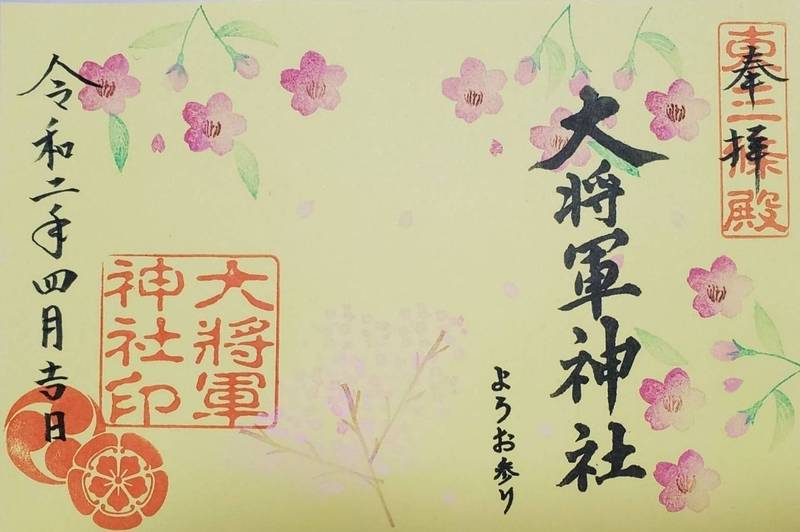 奉拝
東三條殿
大将軍神社
よろお参り
大將軍
神社印
令和二年四月吉日